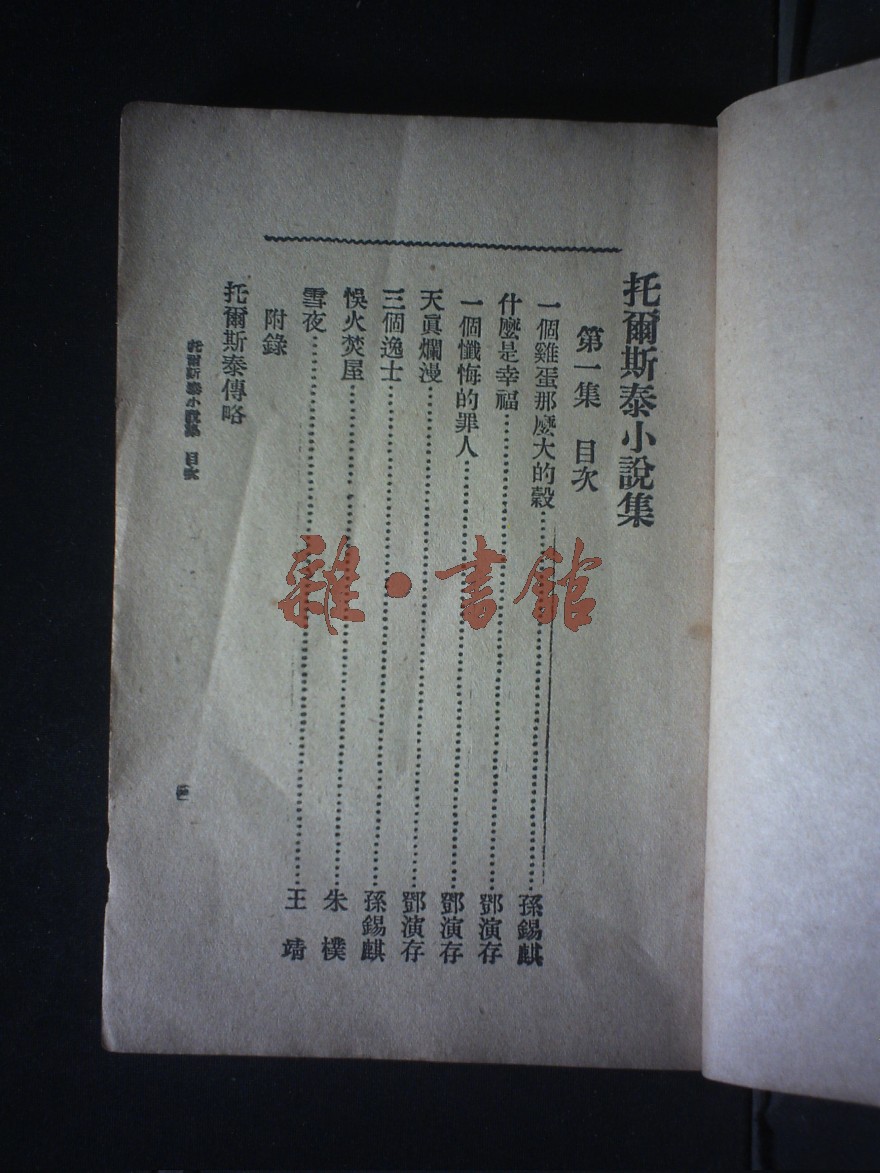 托爾斯泰小說集
第一集 目次
一個雞蛋那麼大的穀……孫錫麒
什麼是幸福……鄧演存
一個懺悔的罪人……鄧演存
天真爛漫……鄧演存
三個逸士……孫錫麒
悞火焚屋……朱樸
雪夜……王靖
附錄
托爾斯泰傳略
托爾斯泰小說集 目次
雜·書館